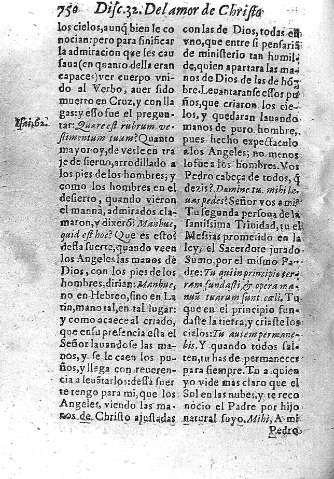 750 Disc.32. Del amor de Christo
los cielos, aunq̃ bien le co
nocian: pero para significar
la admiracion que les cau
saua (en quanto della eran
capaces) ver cuerpo vni
do al Verbo, auer sido
muerto en Cruz, y con lla
gas: y esso fue el pregun-
tar: Quare est rubrum ve-
stimentum tuum? Quanto
mayor, y, de verle en tra
je de sieruo, arrodillado a
los pies de los hombres; y
como los hombres en el
desierto, quando vieron
el manna, admirados cla-
maron, y dixerõ: Manhu,
quid est hoc? Que es esto?
desta suerte, quando veen
los Angeles las manos de
Dios, con los pies de los
hombres, dirian: Manhu,
no en Hebreo, sino en La
tin, mano tal, en tal lugar:
y como acaece al criado,
que en su presencia està el
Señor lauandose las ma-
nos, y se le caen los pu-
ños, y llega con reueren-
cia a leuãtarlos: dessa suer
te tengo para mi, que los
Angeles, viendo las ma-
nos de Christo ajustadas
Esai, 62.
con las de Dios, todas en
vno, que entre si pensariã
de ministerio tan humil-
de, quien apartara las ma
nos de Dios de las de hõ-
bre. Leuantaranse essos pu
ños, que criaron los cie-
los, y quedaran lauando
manos de puro hombre,
pues hecho espectaculo
a los Angeles; no menos
lo fue a los hombres. Vos
Pedro cabeça de todos, q̃
dezis? Domine tu mihi la
uas pedes? Señor vos a mi?
Tu segunda persona de la
santissima Trinidad, tu el
Messias prometido en la
ley, el Sacerdote jurado
Sumo, por el mismo Pa-
dre: Tu qui in principio ter-
ram fundasti, & opera ma-
nuũ tuarum sunt cæli. Tu
que en el principio fun-
daste la tierra, y criaste los
cielos: Tu autem permane-
bis. Y quando todos fal-
ten, tu has de permanecer
para siempre. Tu a quien
yo vide mas claro que el
Sol en las nubes, y te reco
nocio el Padre por hijo
natural suyo. Mihi, A mi
Pedro,